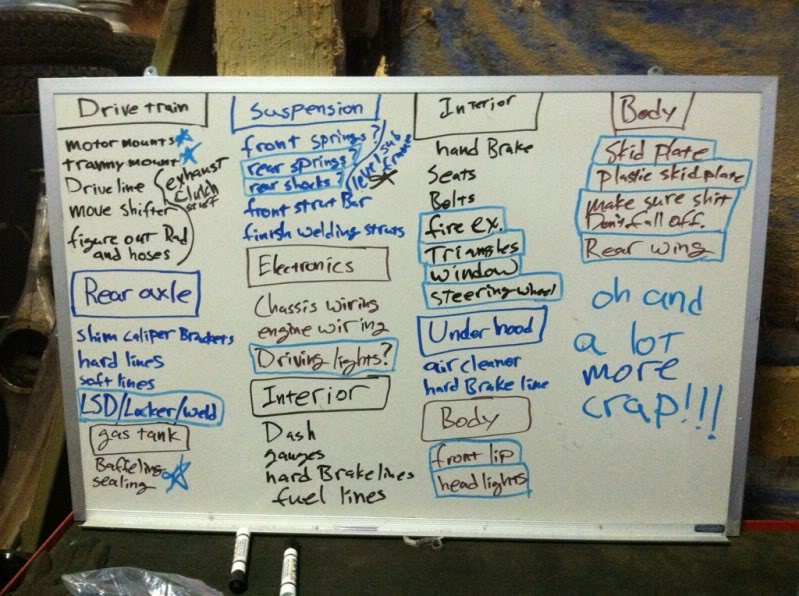 Drive train
motor mounts
tranny mount
Drive line
exhaust
clutch
stuff
move shifter
figure out Rad
and hoses
Rear axle
shim caliper Brackets
hard lines
soft lines
LSD/Locker/weld
gas tank
Baffeling
sealing
Suspension
front springs?
rear springs?
rear shocks?
level sub
frame
front strut Bar
finish welding struts
Electronics
Chassis wiring
engine wiring
Driving lights?
Interior
Dash
gauges
hard Brake lines
fuel lines
Interior
hand Brake
Seats
Bolts
fire ex.
Triangles
window
steering wheel
Under hood
air cleaner
hard Brake line
Body
front lip
headlights
Body
Skid plate
Plastic skid plate
make sure shit
Don't fall off.
Rear wing
oh and
a lot
more
crap!!!